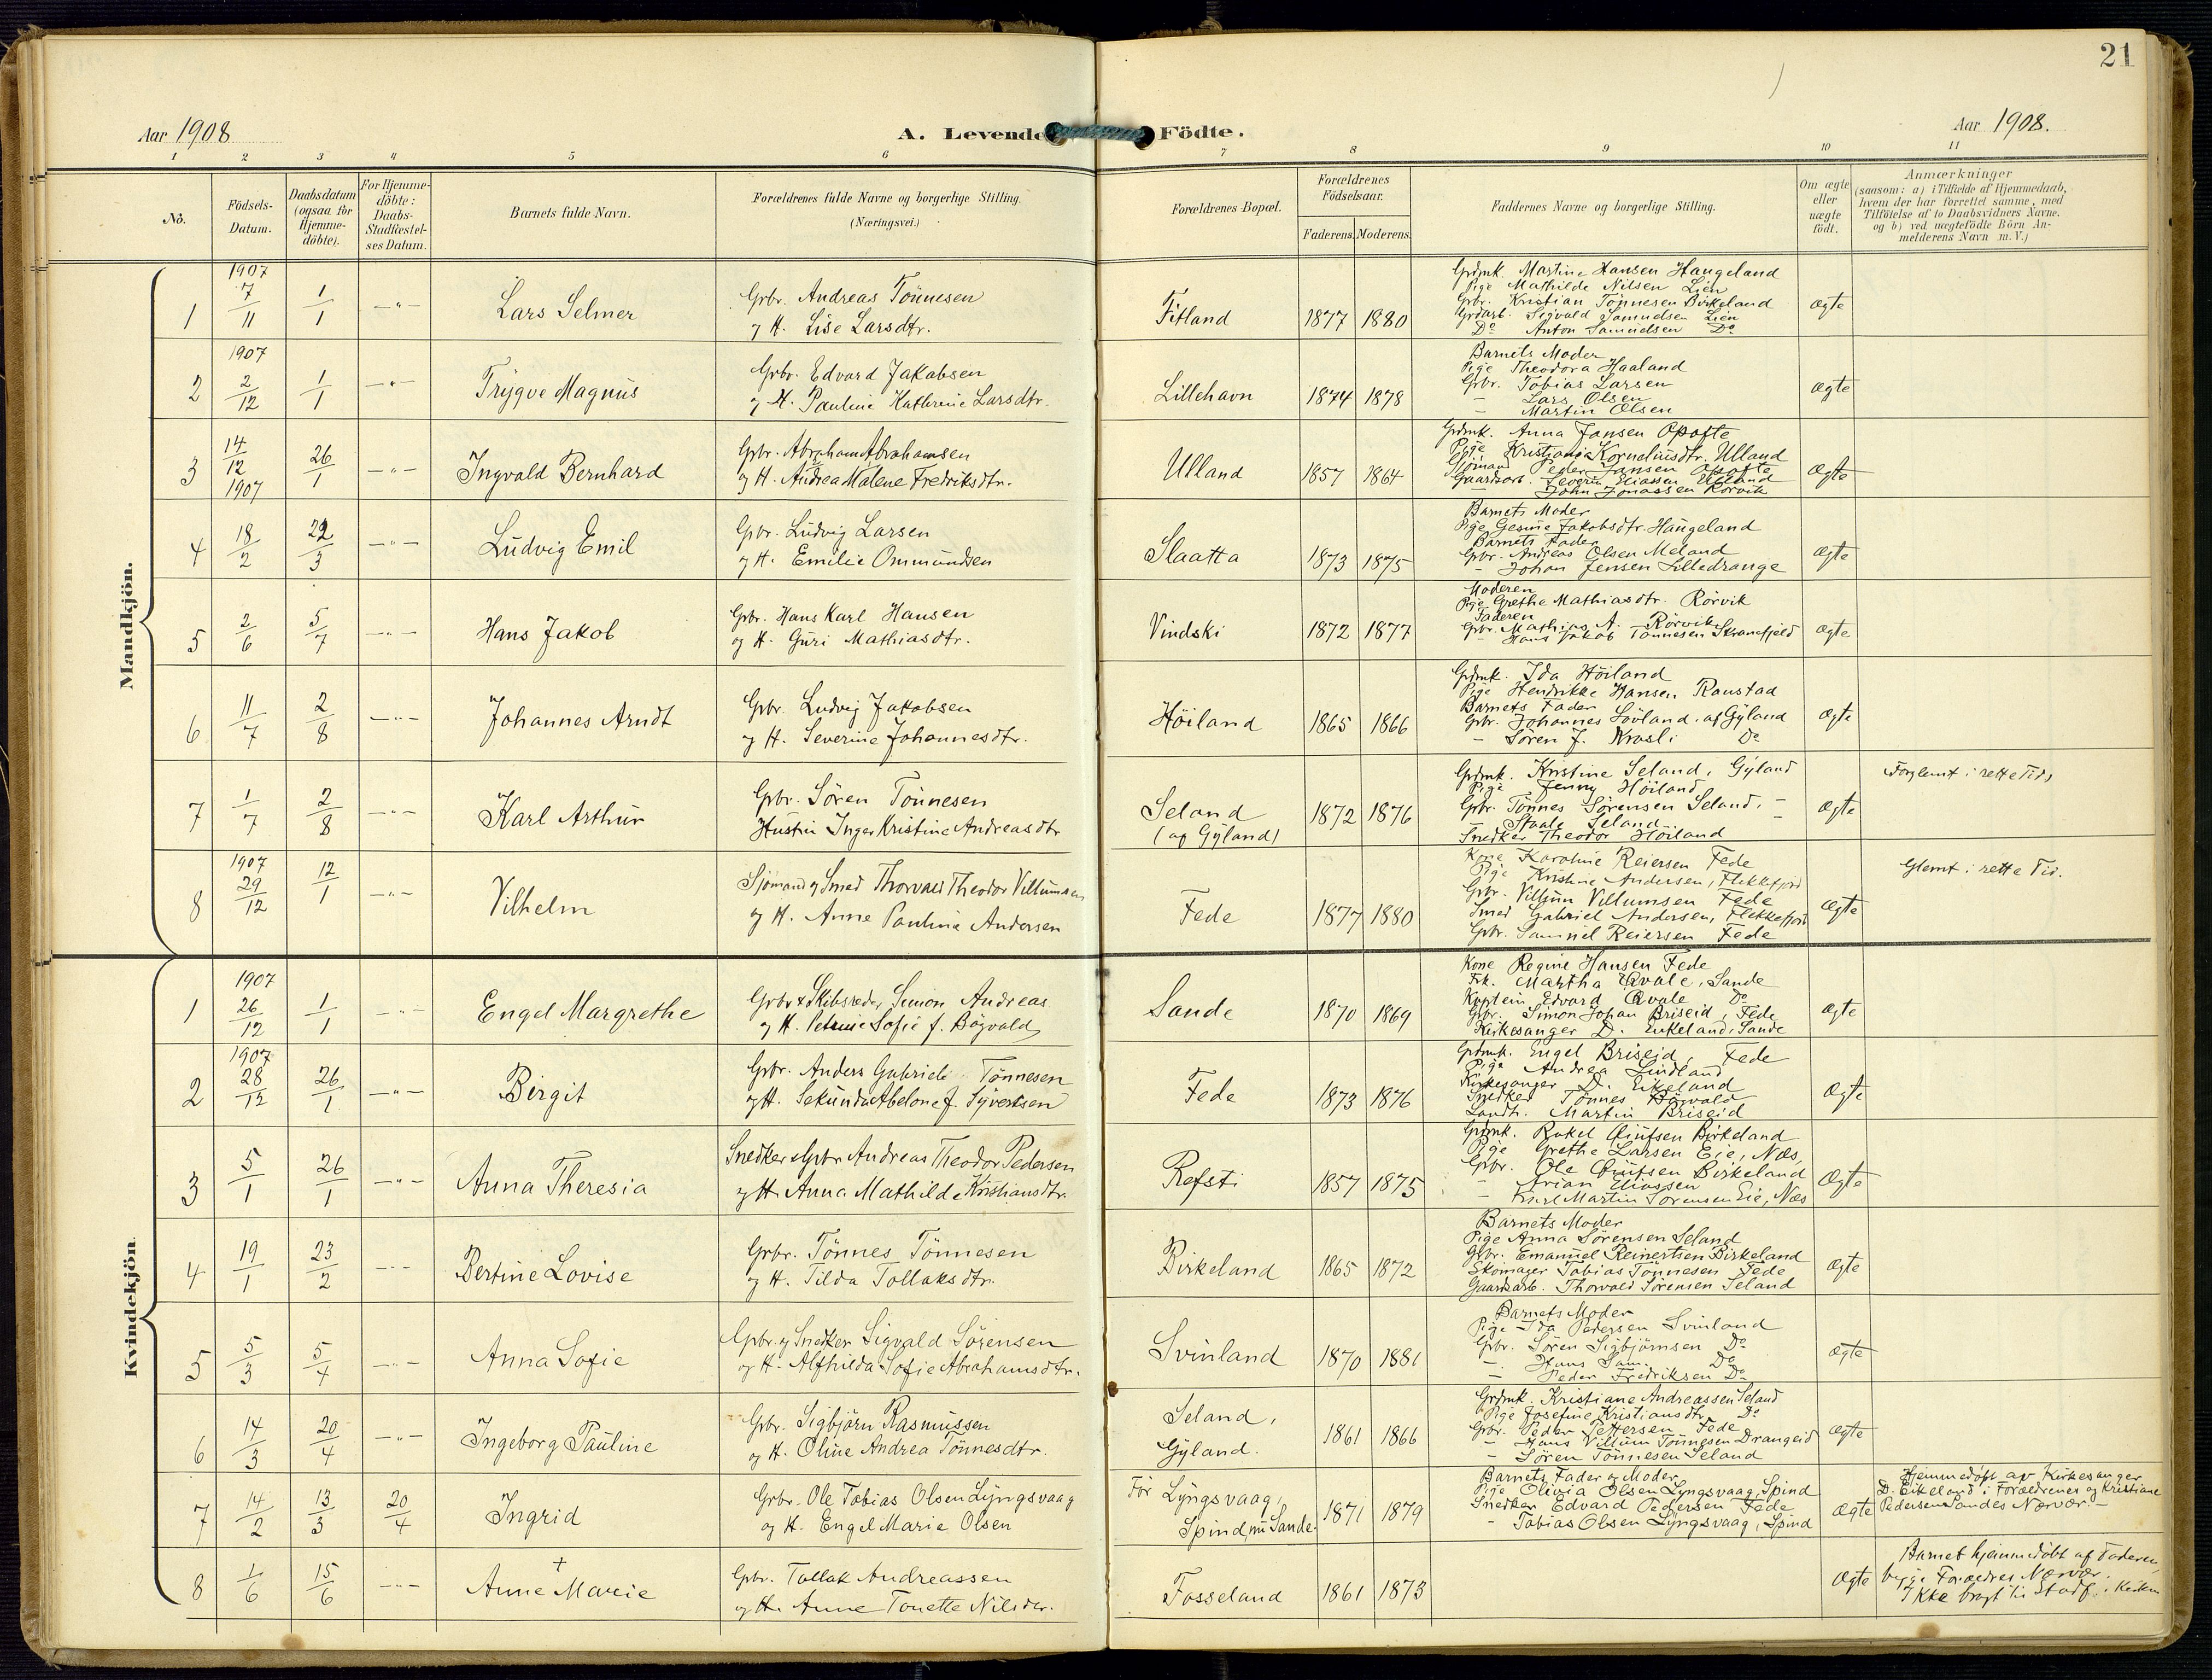 21
Aar 1908
A. Levende Födte.
Aar 1908.
1 2 3 4 5 6 7 8 9 10 11
No.
Födsels-
Datum.
Daabsdatum
(ogsaa for
Hjemme-
döbte).
For Hjemme-
döbte:
Daabs-
Stadfæstel-
ses Datum.
Barnets fulde Navn.
Forældrenes fulde Navne og borgerlige Stilling.
(Næringsvei.)
Forældrenes Bopæl.
Forældrenes
Födselsaar.
Faderens. Moderens.
Faddernes Navne og borgerlige Stilling.
Om ægte
eller
uægte
födt.
Anmærkninger
(saasom: a) i Tilfælde af Hjemmedaab,
hvem der har forrettet samme, med
Tilföielse af to Daabsvidners Navne.
og b) ved uægtefödte Börn An-
melderens Navn m. V.)
Mandkjön.
1
1907
7/11
1/1
—"—
Lars Selmer
Gbr. Andreas Tönnesen
og H. Lise Larsdtr.
Fitland
1877 1880
Grdmk. Martine Hansen Haugeland
Pige Mathilde Nilsen Lien
Gbr. Kristian Tönnesen Birkeland
Grdarb. Sigvald Samuelsen Lien
Do Anton Samuelsen Do
Ægte
2
1907
2/12
1/1
—"—
Trygve Magnus
Gbr. Edvard Jakobsen
og H. Pauline Kathrine Larsdtr.
Lillehavn
1874 1878
Barnets Moder
Pige Theodora Haaland
Gbr. Tobias Larsen
– Lars Olsen
– Martin Olsen
Ægte
3
14/12
1907
26/1
—"—
Ingvald Bernhard
Gbr. Abraham Abrahamsen
og H. Andrea Malene Fredriksdtr.
Ulland
1857 1864
Grdmk. Anna Jansen Opofte
Pige Kristiania Korneliusdtr. Ulland
Sjömand Peder Jansen Opofte
Gaardsarb. Severin Eliassen Ulland
– John Jonassen Rörvik
Ægte
4
18/2
22/3
—"—
Ludvig Emil
Gbr. Ludvig Larsen
og H. Emilie Ommundsen
Slaatta
1873 1875
Barnets Moder
Pige Gesine Jakobsdtr. Haugeland
Barnets Fader
Gbr. Andreas Olsen Meland
– Johan Jensen Lilledrange
Ægte
5
2/6
5/7
—"—
Hans Jakob
Gbr. Hans Karl Hansen
og H. Guri Mathiasdtr.
Vindski
1872 1877
Moderen
Pige Grethe Mathiasdtr. Rörvik
Faderen
Gbr. Mathias A. Rörvik
– Hans Jakob Tönnesen Skranefjeld
Ægte
6
11/7
2/8
—"—
Johannes Arndt
Gbr. Ludvig Jakobsen
og H. Severine Johannesdtr.
Höiland
1865 1866
Grdmk. Ida Höiland
Pige Hendrikke Hansen Raustad
Barnets Fader
Gbr. Johannes Lövland, af Gyland
– Sören J. Krosli Do
Ægte
7
1/7
2/8
—"—
Karl Arthur
Gbr. Sören Tönnesen
Hustru Inger Kristine Andreasdtr
Seland
(af Gyland)
1872 1876
Grdmk. Kristine Seland, Gyland
Pige Jenny Höiland
Gbr. Tönnes Sörensen Seland, –
Staale Seland –
Snedker Theodor Höiland
Ægte
Forglemt i rette Tid,
8
1907
29/12
12/1
—"—
Vilhelm
Sjömand og Smed Thorvald Theodor Villumsen
og H. Anne Pauline Andersen
Fede
1877 1880
Kone Karoline Reiersen Fede
Pige Kristine Andersen, Flekkefjord
Gbr. Villum Villumsen Fede
Smed Gabriel Andersen, Flekkefjord
Gbr. Samuel Reiersen Fede
Ægte
Glemt i rette Tid.
Kvindekjön
1
1907
26/12
1/1
—"—
Engel Margrethe
Gbr & Skibsreder Simon Andreas
og H. Petrine Sofie f. Bögvald
Sande
1870 1869
Kone Regine Hansen Fede
Frk. Martha Qvale, Sande
Kaptein Edvard Qvale Do
Gbr. Simon Johan Briseid, Fede
Kirkesanger D. Eikeland, Sande
Ægte
2
1907
28/12
26/1
—"—
Birgit
Gbr. Anders Gabriel Tönnesen
og H. Sekunda Abelone f. Syvertsen
Fede
1873 1876
Grdmk. Engel Briseid, Fede
Pige Andrea Lindland
Kirkesanger D. Eikeland
Snedker Tönnes Bögvald
Landh. Martin Briseid
Ægte
3
5/1
26/1
—"—
Anna Theresia
Snedker & Gbr Andreas Theodor Pedersen
og H. Anna Mathilde Kristiansdtr.
Refsti
1857 1875
Grdmk. Rakel Omfsen Birkeland
Pige Grethe Larsen Eie, Næs,
Gbr. Ole Omfsen Birkeland
– Arian Eliassen
– Karl Martin Sörensen Eie, Næs
Ægte
4
19/1
23/2
—"—
Bertine Lovise
Gbr. Tönnes Tönnesen
og H. Tilda Tollaksdtr.
Birkeland
1865 1872
Barnets Moder
Pige Anna Sörensen Seland
Gbr. Emanuel Reinertsen Birkeland
Skomager Tobias Tönnesen Fede
Gaardsarb. Thorvald Sörensen Seland
Ægte
5
5/3
5/4
—"—
Anna Sofie
Gbr. og Snedker Sigvald Sörensen
og H. Alfhilda Sofie Abrahamsdtr.
Svinland
1870 1881
Barnets Moder
Pige Ida Pedersen Svinland
Gbr. Sören Sigbjörnsen Do
– Hans Sam. Do
– Peder Fredriksen Do
Ægte
6
14/3
20/4
—"—
Ingeborg Pauline
Gbr. Sigbjörn Rasmussen
og H. Oline Andrea Tönnesdtr.
Seland,
Gyland.
1861 1866
Grdmk. Kristiane Andreassen Seland
Pige Josefine Kristiansdtr Do
Gbr. Peder Pettersen Fede
– Hans Villum Tönnesen Drangeid
– Sören Tönnesen Seland
Ægte
7
14/2
13/3
20/4
Ingrid
Gbr. Ole Tobias Olsen Lyngsvaag
og H. Engel Marie Olsen
För Lyngsvaag,
Spind, nu Sande.
1871 1879
Barnets Fader og Moder
Pige Olivia Olsen Lyngsvaag, Spind
Snedker Edvard Pedersen Fede
– Tobias Olsen Lyngsvaag, Spind
Ægte
Hjemmedöbt av Kirkesanger
D. Eikeland i Forældrenes og Kristiane
Pedersen Sandes Nærvær. –
8
1/6
15/6
—"—
+
Anne Marie
Gbr. Tollak Andreassen
og H. Anne Tonette Nilsdtr.
Fosseland
1861 1873
Ægte
Barnet hjemmedöbt af Faderen,
begge Forældres Nærvær.
Ikke bragt til Stadf. i Kirken